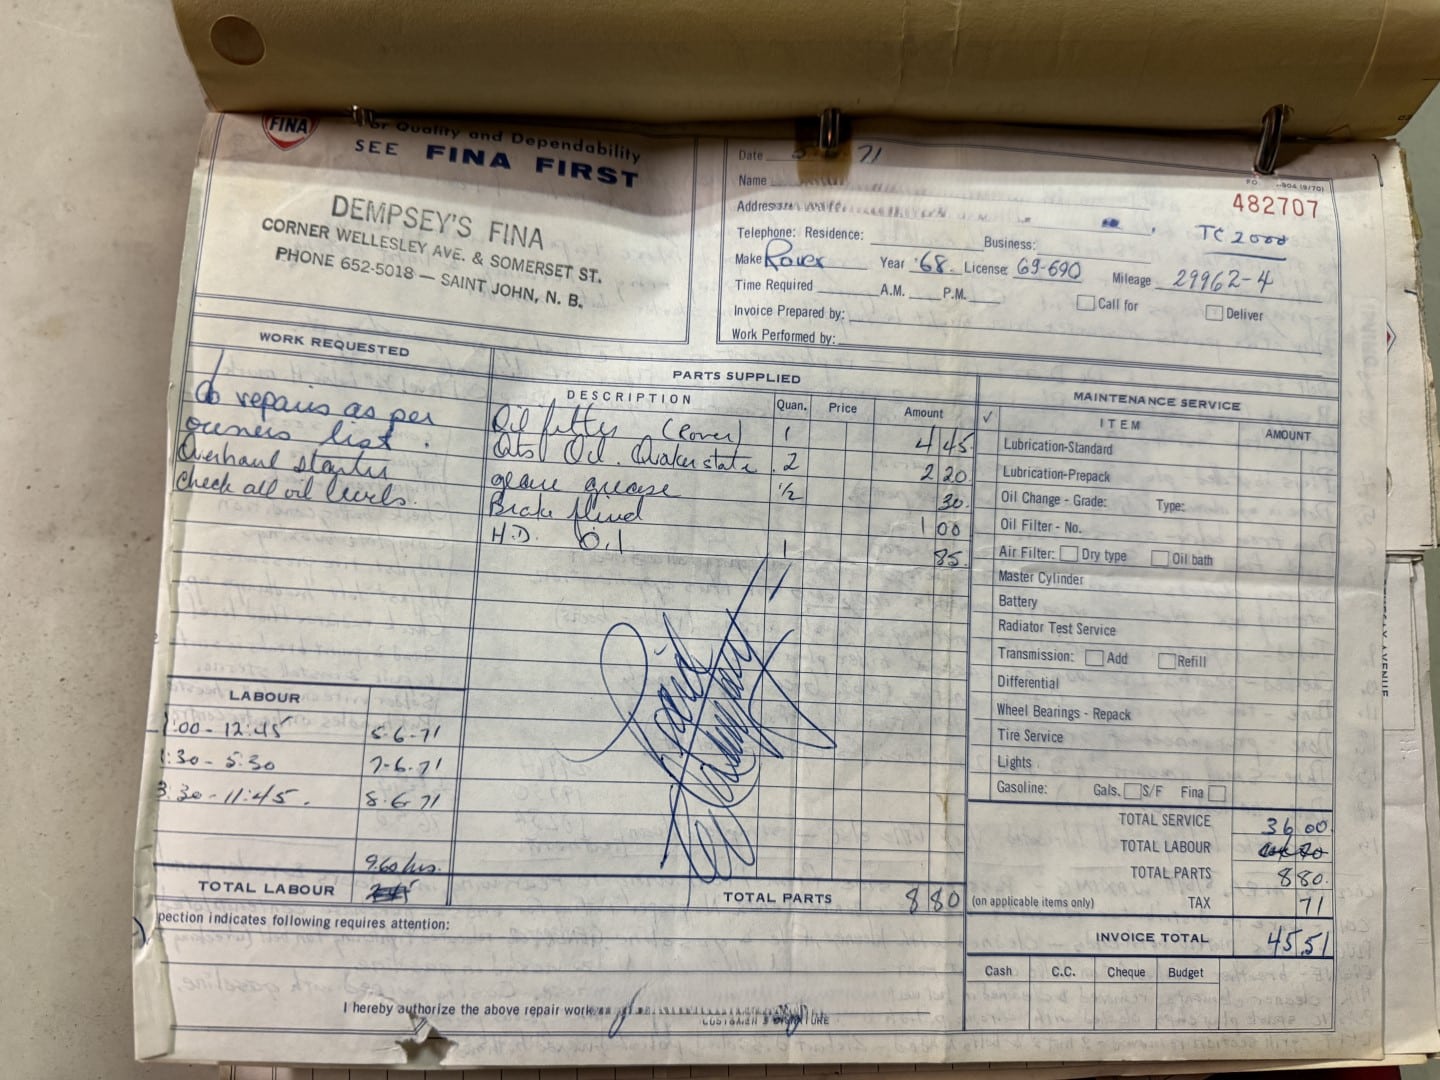 FINA
For Quality and Dependability
SEE FINA FIRST
DEMPSEY'S FINA
CORNER WELLESLEY AVE. & SOMERSET ST.
PHONE 652-5018 — SAINT JOHN, N. B.
Date 71
Name
Address
482707
TC 2000
Telephone: Residence: Business:
Make Rover Year '68 License 69-690 Mileage 29962-4
Time Required A.M. P.M.
Call for Deliver
Invoice Prepared by:
Work Performed by:
WORK REQUESTED
Do repairs as per
owners list.
Overhaul starter
Check all oil levels.
PARTS SUPPLIED
DESCRIPTION Quan. Price Amount
Oil filter (Rover) 1 4 45
Qts Oil. Quaker state 2 2 20
grease 1/2 30
Brake fluid 1 00
H.D. Oil 1 85
MAINTENANCE SERVICE
✓ ITEM AMOUNT
Lubrication-Standard
Lubrication-Prepack
Oil Change - Grade: Type:
Oil Filter - No.
Air Filter: Dry type Oil bath
Master Cylinder
Battery
Radiator Test Service
Transmission: Add Refill
Differential
Wheel Bearings - Repack
Tire Service
Lights
Gasoline: Gals. S/F Fina
LABOUR
:00 - 12:45 5-6-71
:30 - 5:30 7-6-71
3:30 - 11:45. 8-6-71
9.60 hrs.
TOTAL LABOUR
Paid
TOTAL PARTS 8 80
TOTAL SERVICE 36 00
TOTAL LABOUR
TOTAL PARTS 8 80
(on applicable items only) TAX 71
INVOICE TOTAL 45.51
Cash C.C. Cheque Budget
pection indicates following requires attention:
I hereby authorize the above repair work
CUSTOMER'S SIGNATURE